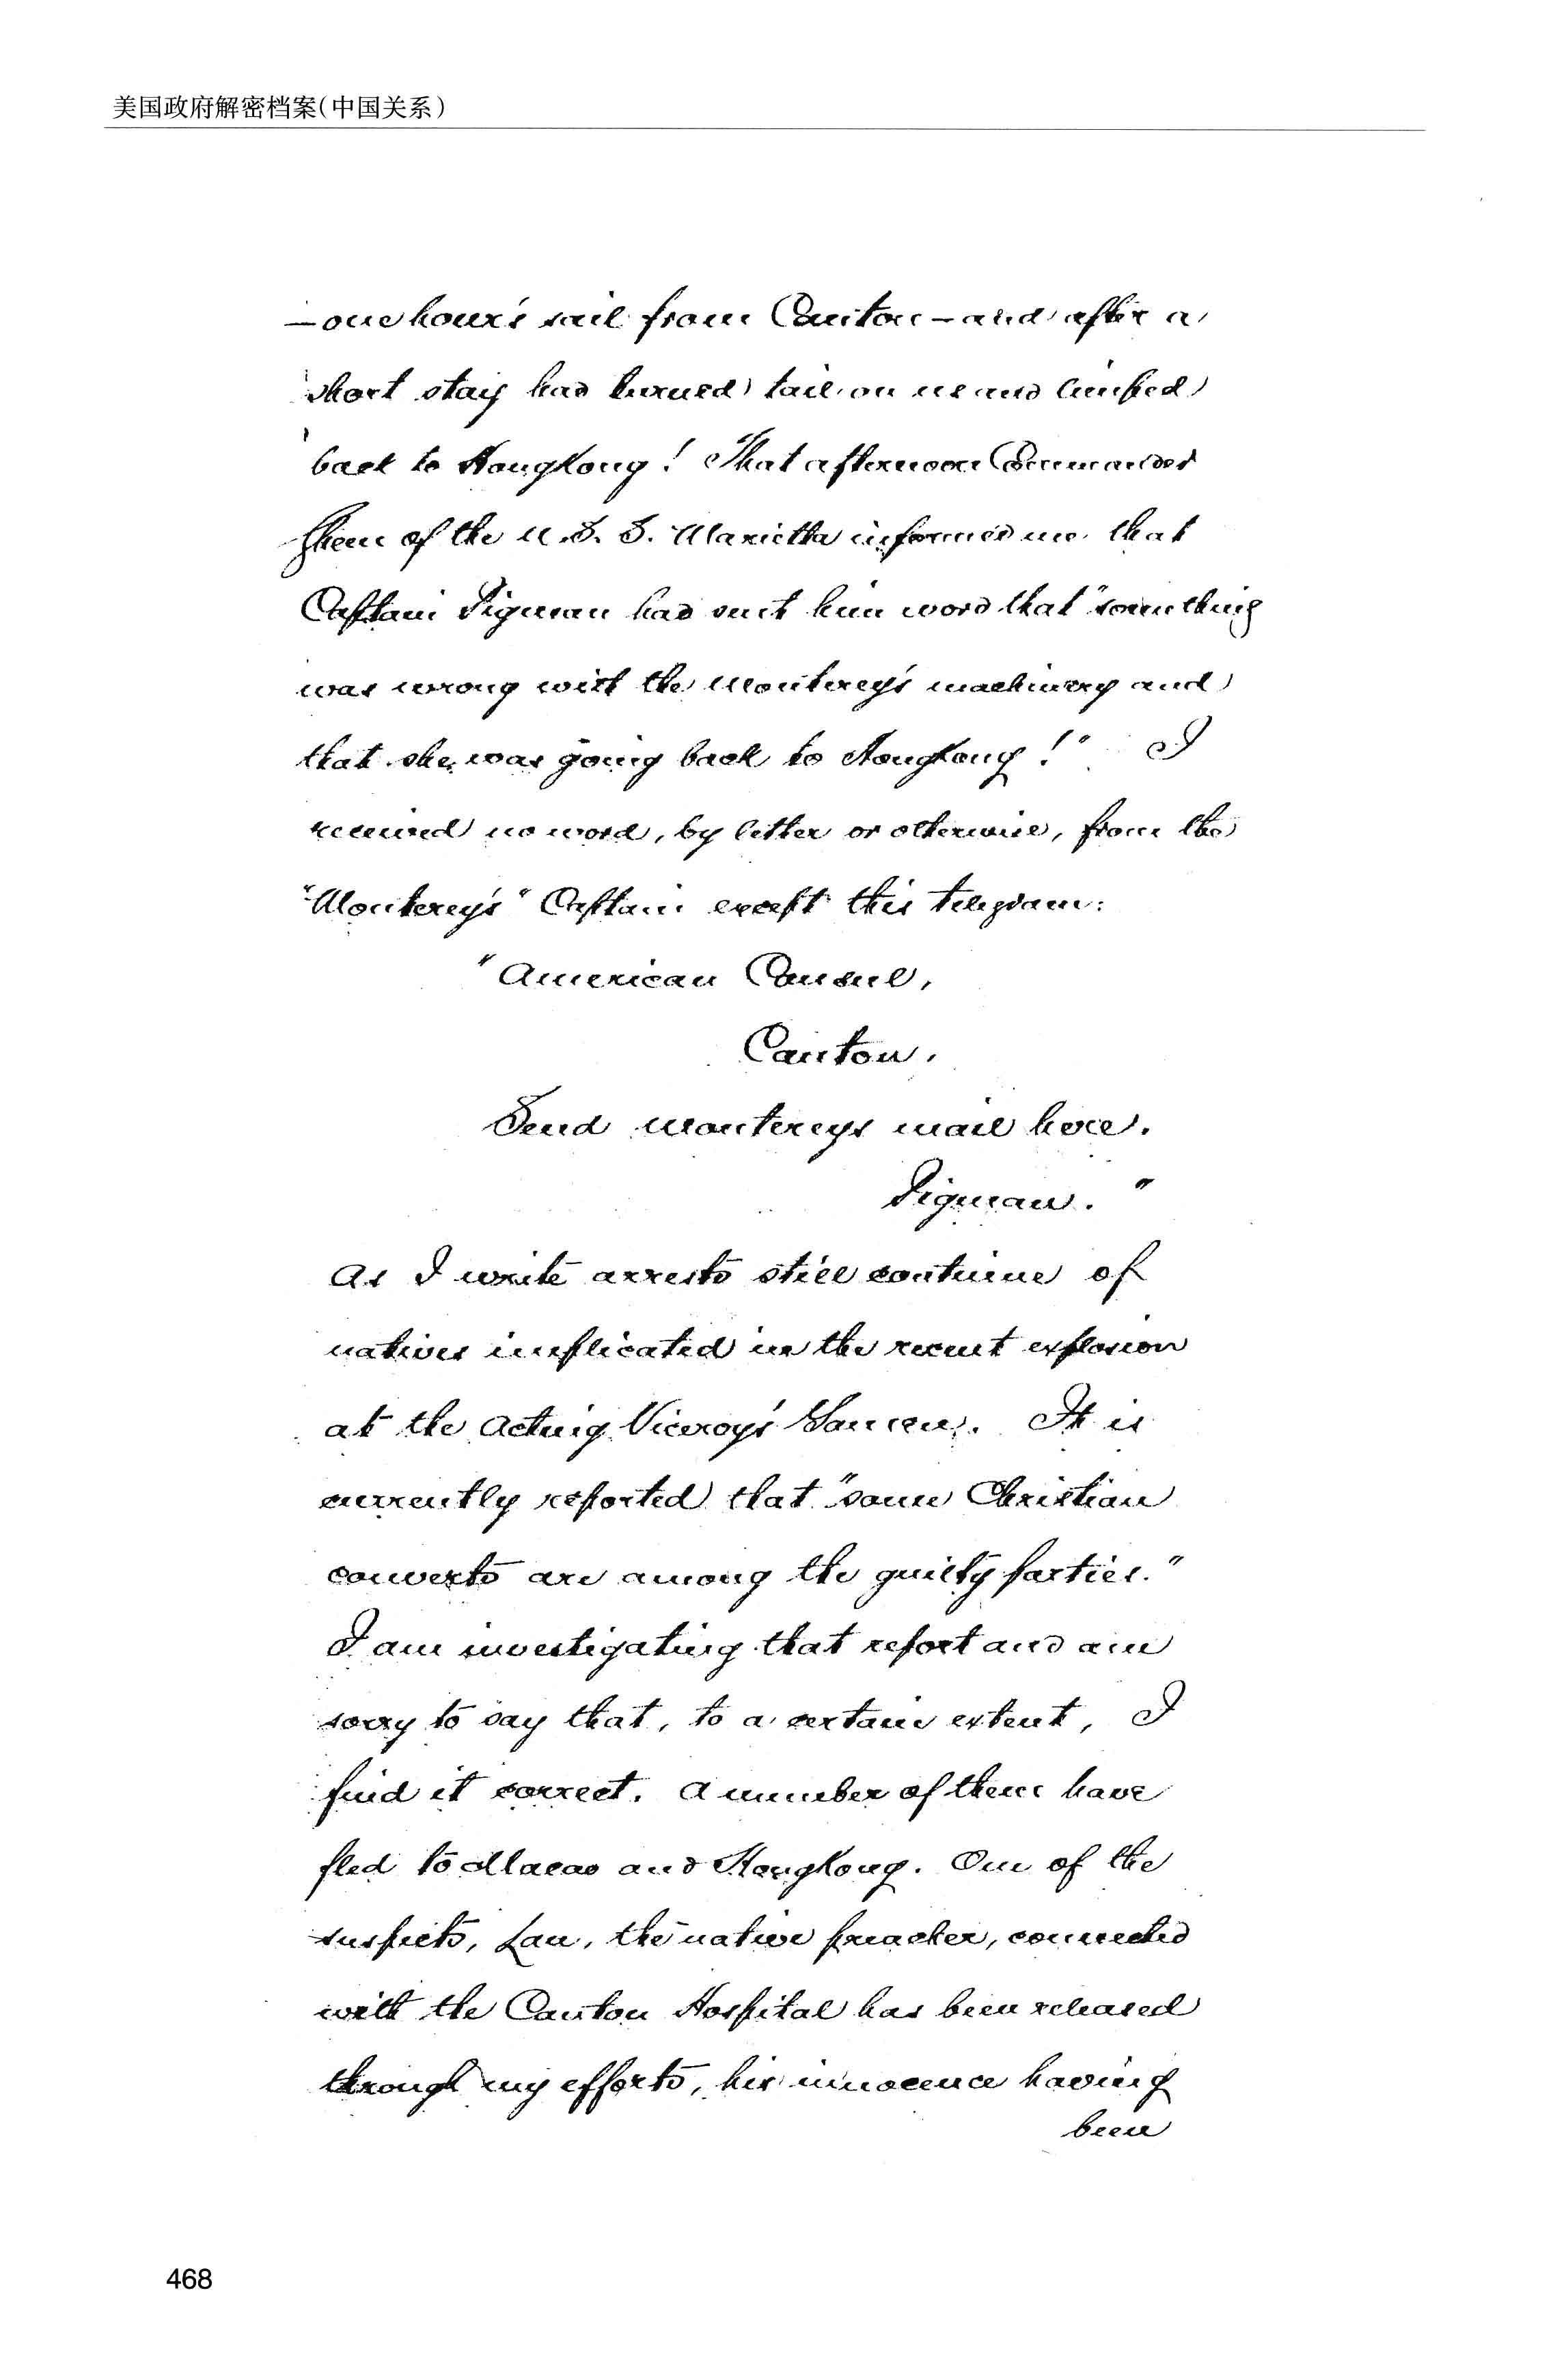 美国政府解密档案(中国关系)
— one hour's sail from Canton — and after a
short stay had turned tail on us and limped
back to HongKong! That afternoon Commander
of the U.S.S. "Marietta informed me that
Captain Pigman had sent him word that "something
was wrong with the Monterey's machinery and
that she was going back to HongKong!" I
received no word, by letter or otherwise, from the
"Monterey's" Captain except this telegram:
"American Consul,
Canton.
Send Montereys mail here.
Pigman."
As I write arrests still continue of
natives implicated in the recent explosion
at the Acting Viceroy's Yamen. It is
currently reported that "some Christian
converts are among the guilty parties."
I am investigating that report and am
sorry to say that, to a certain extent, I
find it correct. A number of them have
fled to Macao and HongKong. One of the
suspects, Lau, the native preacher, connected
with the Canton Hospital has been released
through my efforts, his innocence having
been
468